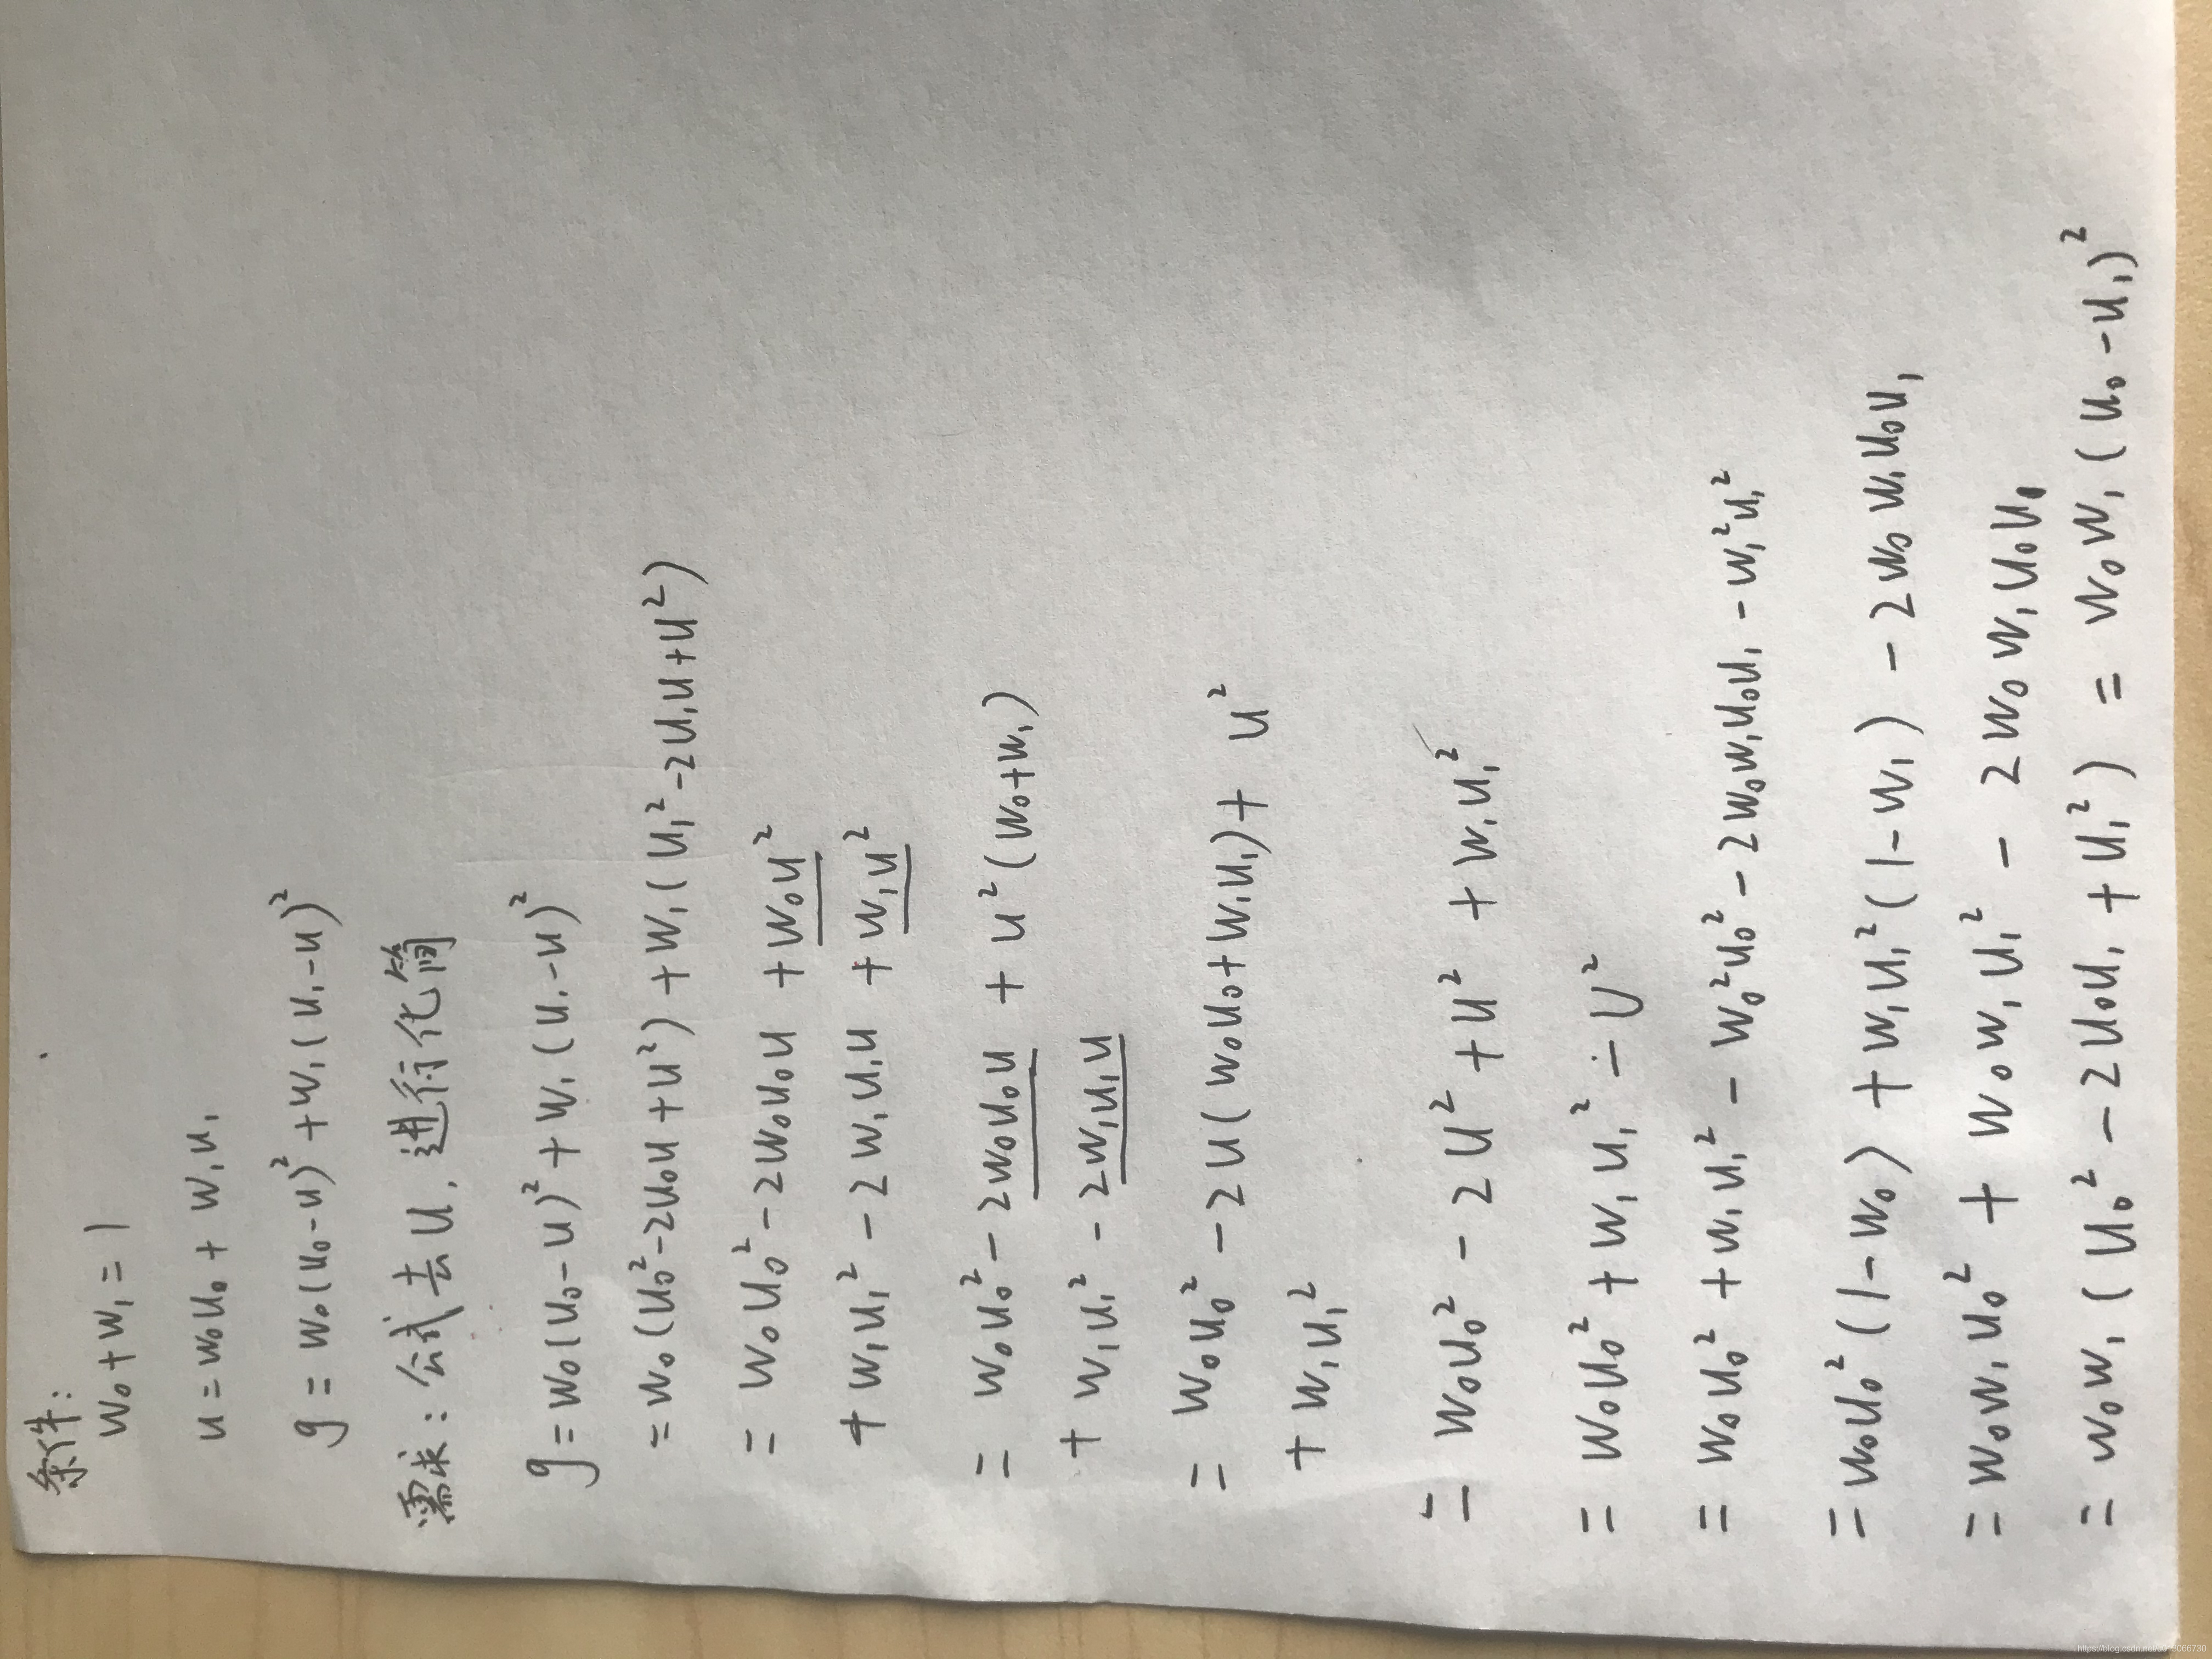 条件:
w₀+w₁=1
u=w₀u₀+w₁u₁
g=w₀(u₀-u)²+w₁(u₁-u)²
需求:公式去u,进行化简
g=w₀(u₀-u)²+w₁(u₁-u)²
=w₀(u₀²-2u₀u+u²)+w₁(u₁²-2u₁u+u²)
=w₀u₀²-2w₀u₀u+w₀u²
+w₁u₁²-2w₁u₁u+w₁u²
=w₀u₀²-2w₀u₀u+u²(w₀+w₁)
+w₁u₁²-2w₁u₁u
=w₀u₀²-2u(w₀u₀+w₁u₁)+u²
+w₁u₁²
=w₀u₀²-2u²+u²+w₁u₁²
=w₀u₀²+w₁u₁²-u²
=w₀u₀²+w₁u₁²-w₀²u₀²-2w₀w₁u₀u₁-w₁²u₁²
=w₀u₀²(1-w₀)+w₁u₁²(1-w₁)-2w₀w₁u₀u₁
=w₀w₁u₀²+w₀w₁u₁²-2w₀w₁u₀u₁
=w₀w₁(u₀²-2u₀u₁+u₁²)=w₀w₁(u₀-u₁)²